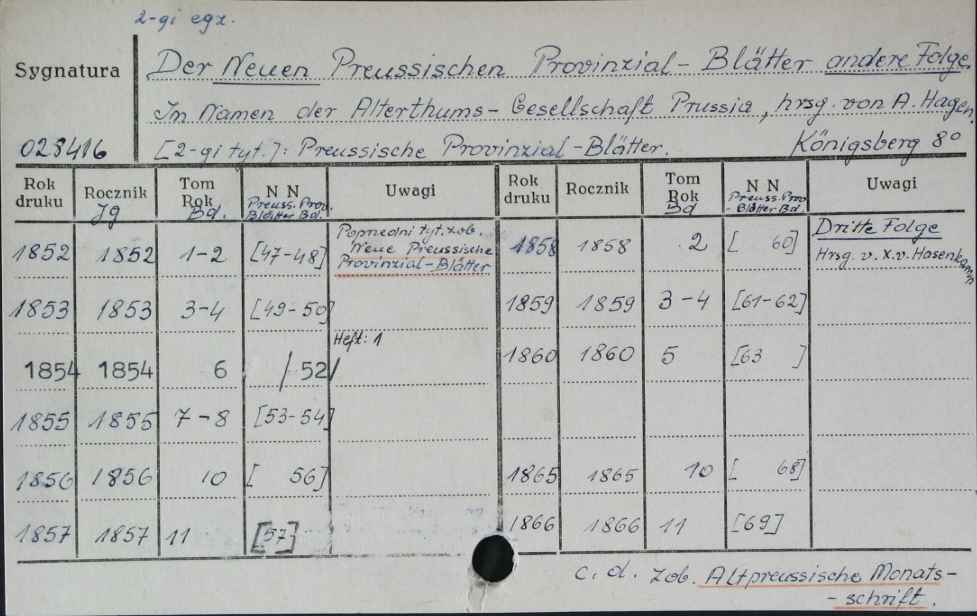 2-gi egz.
Sygnatura
Der Neuen Preussischen Provinzial-Blätter andere Folge.
In Namen der Alterthums-Gesellschaft Prussia, hrsg. von A. Hagen,
028416 [2-gi tyt.]: Preussische Provinzial-Blätter. Königsberg 8º
Rok druku | Rocznik Jg | Tom Rok Bd. | N N Preuss. Prov. Blätter Bd. | Uwagi | Rok druku | Rocznik | Tom Rok Bd | N N Preuss. Prov -Blätter Bd. | Uwagi
1852 | 1852 | 1-2 | [47-48] | Poprzedni tyt. zob. Neue Preussische Provinzial-Blätter | 1858 | 1858 | 2 | [ 60] | Dritte Folge Hrsg. v. X. v. Hasenkamm
1853 | 1853 | 3-4 | [49-50] | | 1859 | 1859 | 3-4 | [61-62]
1854 | 1854 | 6 | / 52/ | Heft: 1 | 1860 | 1860 | 5 | [63 ]
1855 | 1855 | 7-8 | [53-54]
1856 | 1856 | 10 | [ 56] | | 1865 | 1865 | 10 | [ 68]
1857 | 1857 | 11 | [57] | | 1866 | 1866 | 11 | [69]
c. d. zob. Altpreussische Monats-
-schrift.